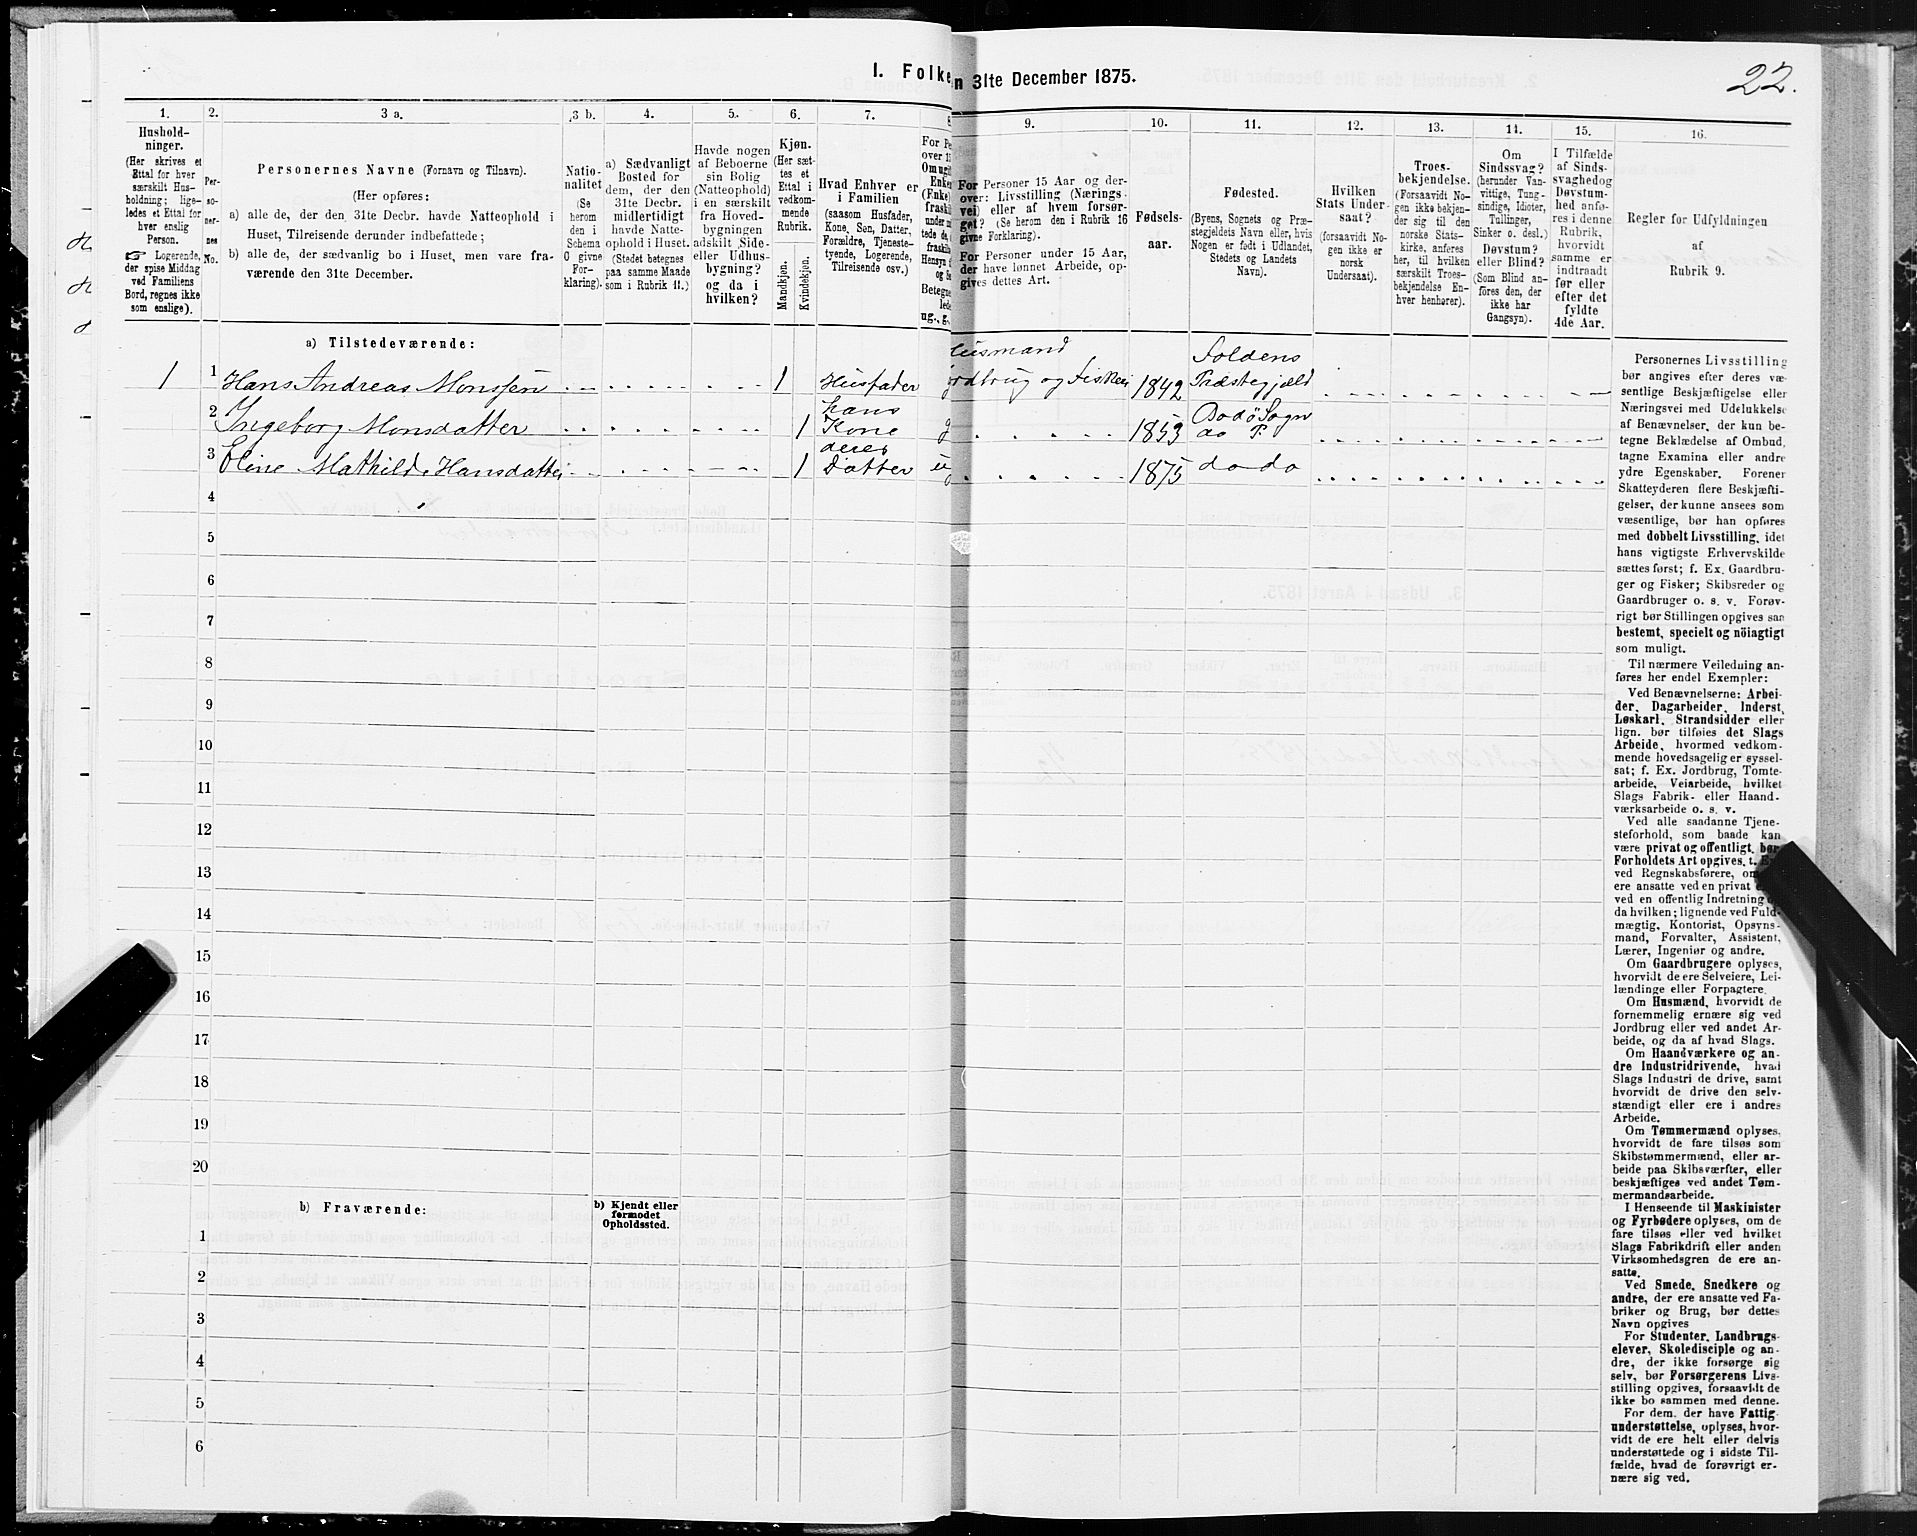 22.
I. Folke
n 31te December 1875.
1. 2. 3 a. 3 b. 4. 5. 6. 7. 8. 9. 10. 11. 12. 13. 14. 15. 16.
Hushold-
ninger.
(Her skrives et
Ettal for hver
særskilt Hus-
holdning; lige-
ledes et Ettal for
hver enslig
Person.
☞ Logerende,
der spise Middag
ved Familiens
Bord, regnes ikke
som enslige).
Per-
so-
ner-
nes
No.
Personernes Navne (Fornavn og Tilnavn).
(Her opføres:
a) alle de, der den 31te Decbr. havde Natteophold i
Huset, Tilreisende derunder indbefattede;
b) alle de, der sædvanlig bo i Huset, men vare fra-
værende den 31te December.
Natio-
nalitet
(Se
herom
den i
Schema
O givne
For-
klaring).
a) Sædvanligt
Bosted for
dem, der den
31te Decbr.
midlertidigt
havde Natte-
ophold i Huset.
(Stedet betegnes
paa samme Maade
som i Rubrik 11.)
Havde nogen
af Beboerne
sin Bolig
(Natteophold)
i en særskilt
fra Hoved-
bygningen
adskilt Side-
eller Udhus-
bygning?
og da i
hvilken?
Kjøn.
(Her sæt-
tes et
Ettal i
vedkom-
mende
Rubrik.
Mandkjøn.
Kvindekjøn.
Hvad Enhver er
i Familien
(saasom Husfader,
Kone, Søn, Datter,
Forældre, Tjeneste-
tyende, Logerende,
Tilreisende osv.)
For Pe
over 1
Om ugi
Enke
(Enke)
fraskil
under n
tede de,
fraskil
Hensyn t
og S
Betegne
lede
ug., g.,
For Personer 15 Aar og der-
over: Livsstilling (Nærings-
vei) eller af hvem forsør-
get? (Se herom den i Rubrik 16
givne Forklaring).
For Personer under 15 Aar,
der have lønnet Arbeide, op-
gives dettes Art.
Fødsels-
aar.
Fødested.
(Byens, Sognets og Præ-
stegjeldets Navn eller, hvis
Nogen er født i Udlandet,
Stedets og Landets
Navn).
Hvilken
Stats Under-
saat?
(forsaavidt No-
gen ikke er
norsk
Undersaat).
Troes-
bekjendelse.
(Forsaavidt No-
gen ikke bekjen-
der sig til den
norske Stats-
kirke, anføres
her, til hvilken
særskilt Troes-
bekjendelse En-
hver henhører).
Om
Sindssvag?
(herunder Van-
vittige, Tung-
sindige, Idioter,
Tullinger,
Sinker o. desl.)
Døvstum?
eller Blind?
(Som Blind an-
føres den, der
ikke har
Gangsyn).
I Tilfælde
af Sinds-
svaghed og
Døvstum-
hed anfø-
res i denne
Rubrik,
hvorvidt
samme er
indtraadt
før eller
efter det
fyldte
4de Aar.
Regler for Udfyldningen
af
Rubrik 9.
a) Tilstedeværende:
Husmand Foldens
1 1 Hans Andreas Monssen 1 Husfader Jordbrug og Fiskeri 1842 Præstegjeld
hans Bodø Sogn
2 Ingeborg Monsdatter 1 Kone g 1853 do P.
deres
3 Eline Mathilde Hansdatter 1 Datter ug 1875 do do
4
5
6
7
8
9
10
11
12
13
14
15
16
17
18
19
20
b) Fraværende:
b) Kjendt eller
formodet
Opholdssted.
1
2
3
4
5
6
Personernes Livsstilling
bør angives efter deres væ-
sentlige Beskjæftigelse eller
Næringsvei med Udelukkelse
af Benævnelser, der kun be-
tegne Beklædelse af Ombud,
tagne Examina eller andre
ydre Egenskaber. Forener
Skatteyderen flere Beskjæfti-
gelser, der kunne ansees som
væsentlige, bør han opføres
med dobbelt Livsstilling, idet
hans vigtigste Erhvervskilde
sættes først; f. Ex. Gaardbru-
ger og Fisker; Skibsreder og
Gaardbruger o. s. v. Forøv-
rigt bør Stillingen opgives saa
bestemt, specielt og nöiagtigt
som muligt.
Til nærmere Veiledning an-
føres her endel Exempler:
Ved Benævnelserne: Arbei-
der, Dagarbeider, Inderst,
Løskarl, Strandsidder eller
lign. bør tilføies det Slags
Arbeide, hvormed vedkom-
mende hovedsagelig er syssel-
sat; f. Ex. Jordbrug, Tomte-
arbeide, Veiarbeide, hvilket
Slags Fabrik- eller Haand-
værksarbeide o. s. v.
Ved alle saadanne Tjene-
steforhold, som baade kan
være privat og offentligt, bør
Forholdets Art opgives, t. Ex.
ved Regnskabsførere, om
ere ansatte ved en privat e
ved en offentlig Indretning o
da hvilken; lignende ved Fuld-
mægtig, Kontorist, Opsyns-
mand, Forvalter, Assistent,
Lærer, Ingeniør og andre.
Om Gaardbrugere oplyses,
hvorvidt de ere Selveiere, Lei-
lændinge eller Forpagtere.
Om Husmænd, hvorvidt de
fornemmelig ernære sig ved
Jordbrug eller ved andet Ar-
beide, og da af hvad Slags.
Om Haandværkere og an-
dre Industridrivende, hvad
Slags Industri de drive, samt
hvorvidt de drive den selv-
stændigt eller ere i andres
Arbeide.
Om Tømmermænd oplyses,
hvorvidt de fare tilsøs som
Skibstømmermænd, eller ar-
beide paa Skibsværfter, eller
beskjæftiges ved andet Tøm-
mermandsarbeide.
I Henseende til Maskinister
og Fyrbødere oplyses, om de
fare tilsøs eller ved hvilket
Slags Fabrikdrift eller anden
Virksomhedsgren de ere an-
satte.
Ved Smede, Snedkere og
andre, der ere ansatte ved Fa-
briker og Brug, bør dettes
Navn opgives
For Studenter, Landbrugs-
elever, Skoledisciple og an-
dre, der ikke forsørge sig
selv, bør Forsørgerens Livs-
stilling opgives, forsaavidt de
ikke bo sammen med denne.
For dem, der have Fattig-
understøttelse, oplyses, hvor-
vidt de ere helt eller delvis
understøttede og i sidste Til-
fælde, hvad de forøvrigt er-
nære sig ved.